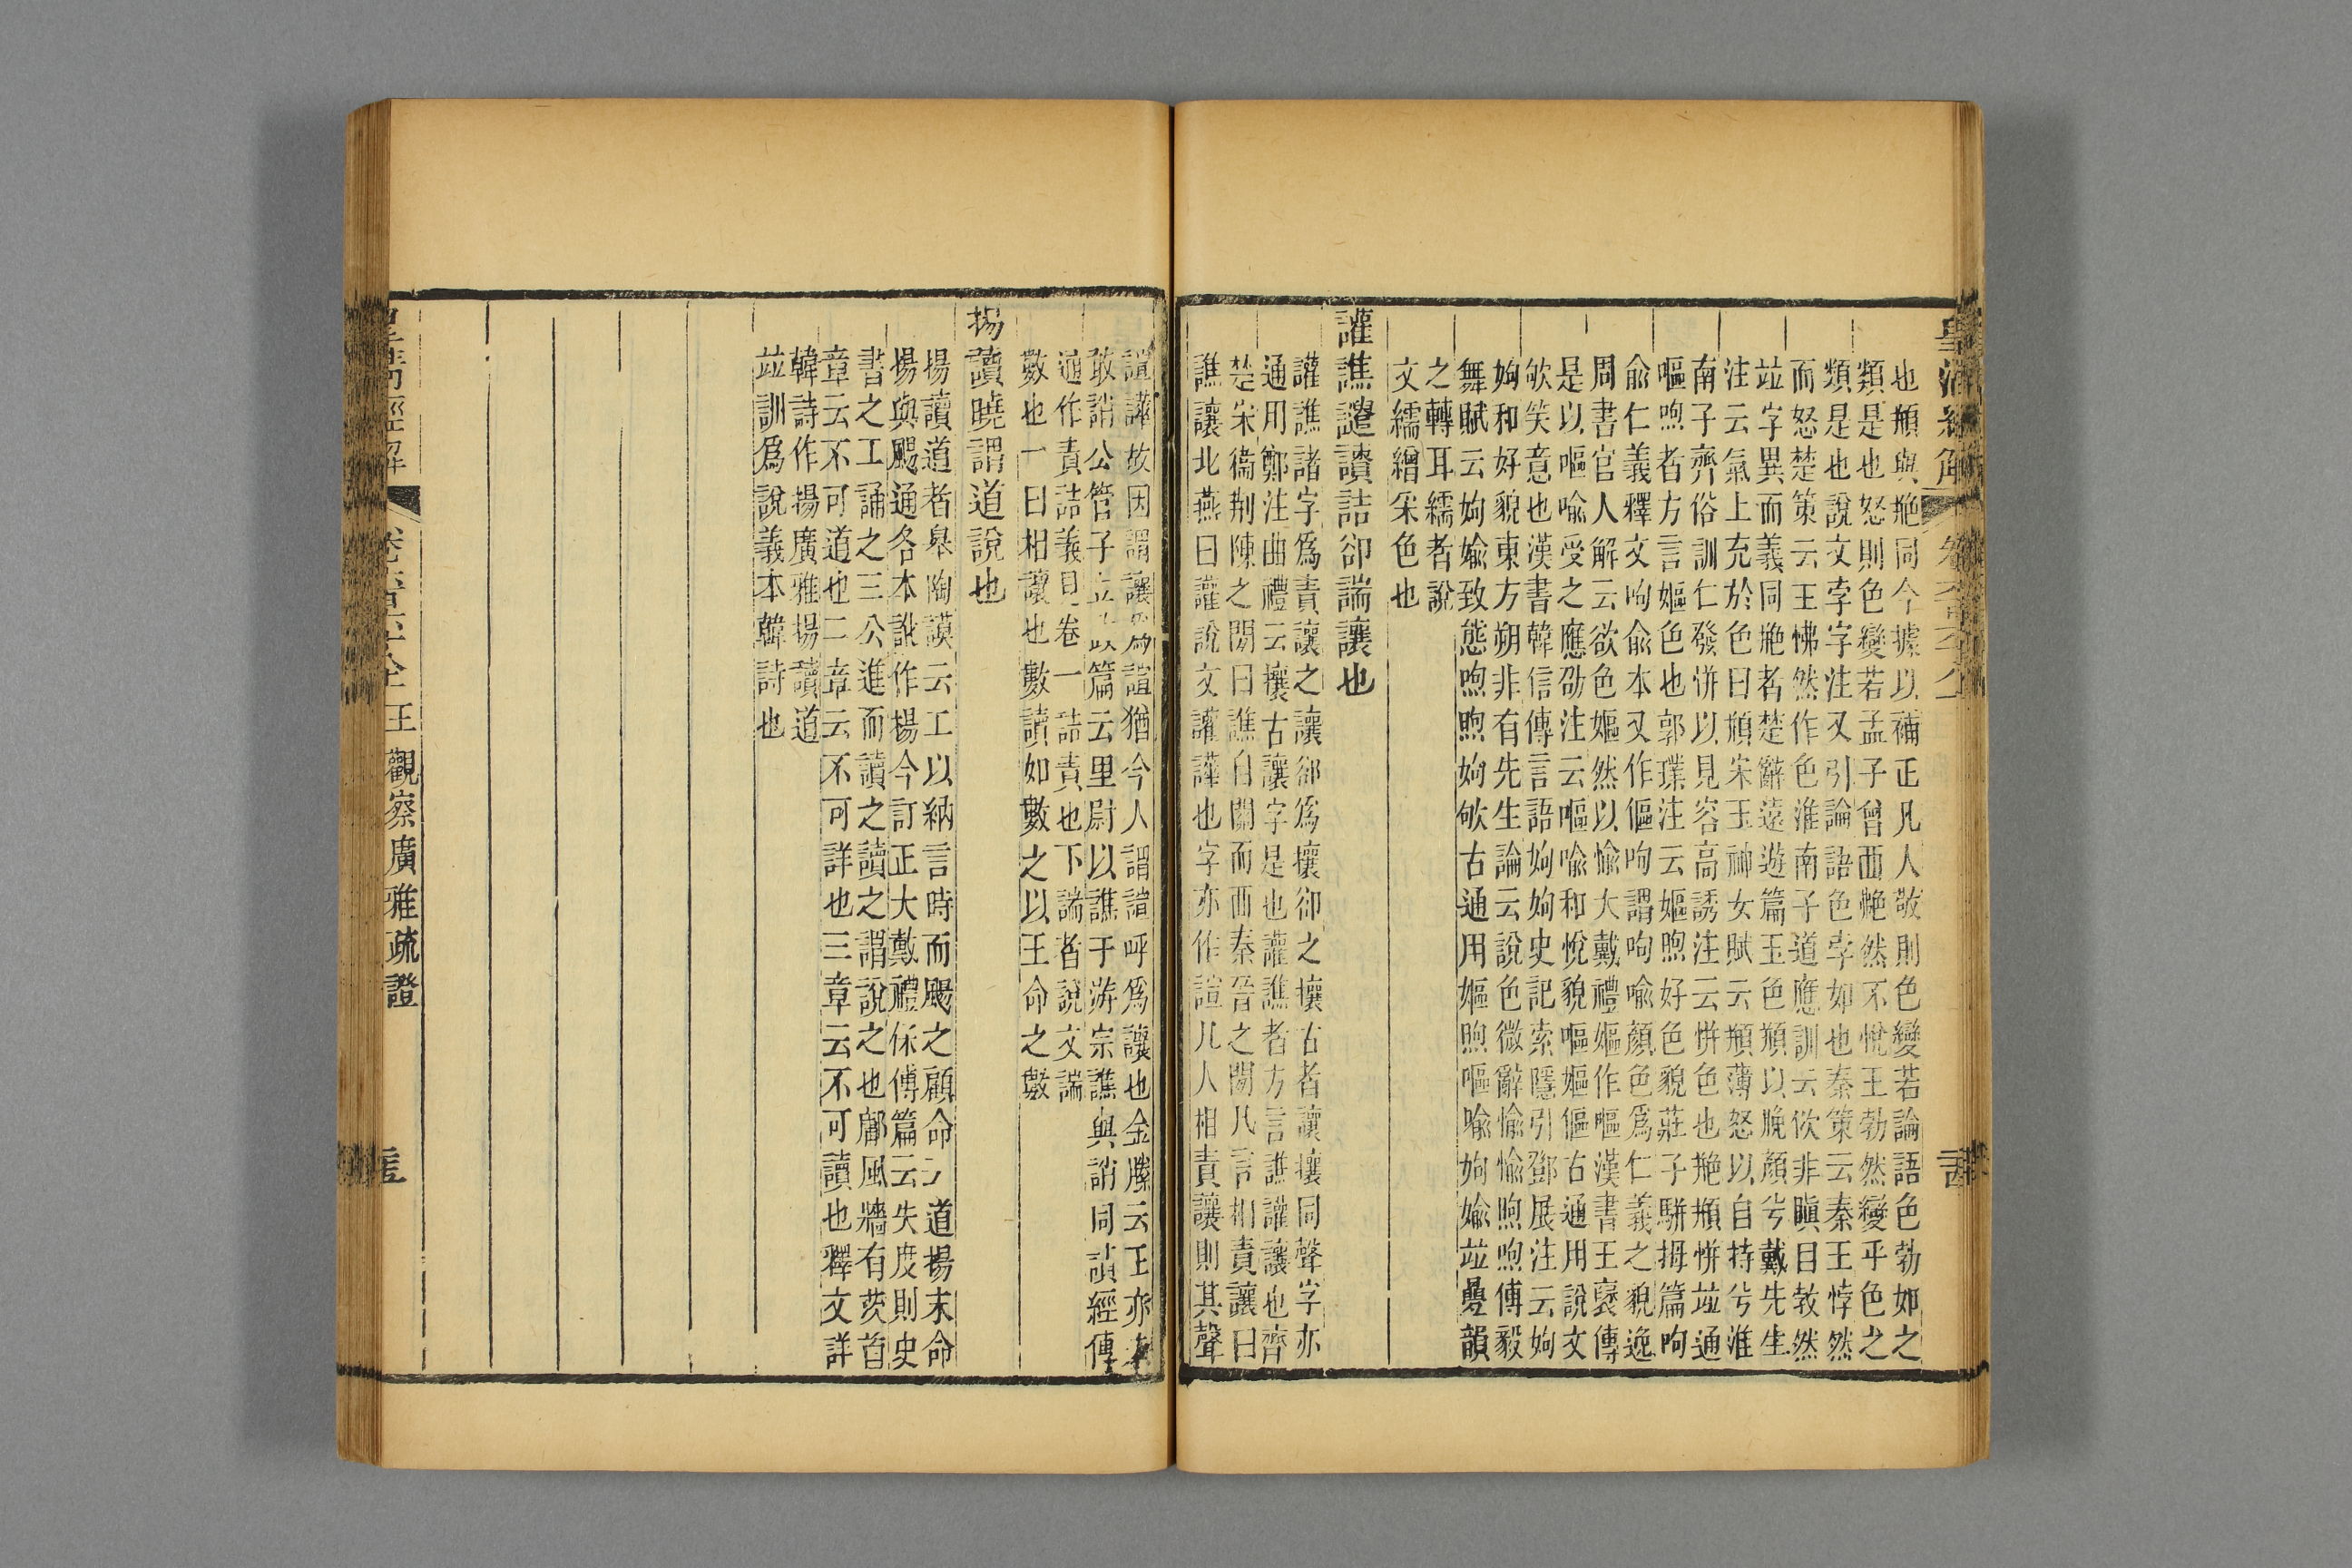 也頩與艴同今據以補正凡人敬則色變若論語色勃如之
類是也怒則色變若孟子曾西艴然不悅王勃然變乎色之
類是也說文孛字注又引論語色孛如也秦策云秦王悖然
而怒楚策云王怫然作色淮南子道應訓云佽非瞋目敦然
竝字異而義同艴者楚辭遠遊篇玉色頩以脕顏兮戴先生
注云氣上充於色曰頩宋玉神女賦云頩薄怒以自持兮淮
南子齊俗訓仁發恲以見容高誘注云恲色也艴頩恲竝通
嘔喣者方言嫗色也郭璞注云嫗煦好色貌莊子駢拇篇呴
俞仁義釋文呴俞本又作傴呴謂呴喻顏色爲仁義之貌逸
周書官人解云欲色嫗然以愉大戴禮嫗作嘔漢書王襃傳
是以嘔喻受之應劭注云嘔喻和悅貌嘔嫗傴古通用說文
欨笑意也漢書韓信傳言語姁姁史記索隱引鄧展注云姁
姁和好貌東方朔非有先生論云說色微辭愉愉喣喣傅毅
舞賦云姁媮致態喣煦姁欨古通用嫗煦嘔喻姁媮竝疊韻
之轉耳繻者說
文繻繒采色也
讙譙譴讀詰卻諯讓也
讙譙諸字爲責讓之讓卻爲攘卻之攘古者讓攘同聲字亦
通用鄭注曲禮云攘古讓字是也讙譙者方言譙讙讓也齊
楚宋衞荆陳之閒曰譙自關而西秦晉之閒凡言相責讓曰
譙讓北燕曰讙說文讙譁也字亦作諠凡人相責讓則其聲
諠譁故因謂讓爲諠猶今人謂諠呼爲讓也金縢云王亦未
敢誚公管子立政篇云里尉以譙于游宗譙與誚同讀經傳
通作責詰義見卷一詰責也下諯者說文諯
數也一曰相讓也數讀如數之以王命之數
揚讀曉謂道說也
揚讀道者皋陶謨云工以納言時而颺之顧命云道揚末命
揚與颺通各本訛作楊今訂正大戴禮保傅篇云失度則史
書之工誦之三公進而讀之讀之謂說之也鄘風牆有茨首
章云不可道也二章云不可詳也三章云不可讀也釋文詳
韓詩作揚廣雅揚讀道
竝訓爲說義本韓詩也
王觀察廣雅疏證